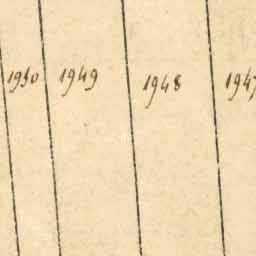 1950 1949 1948 1947